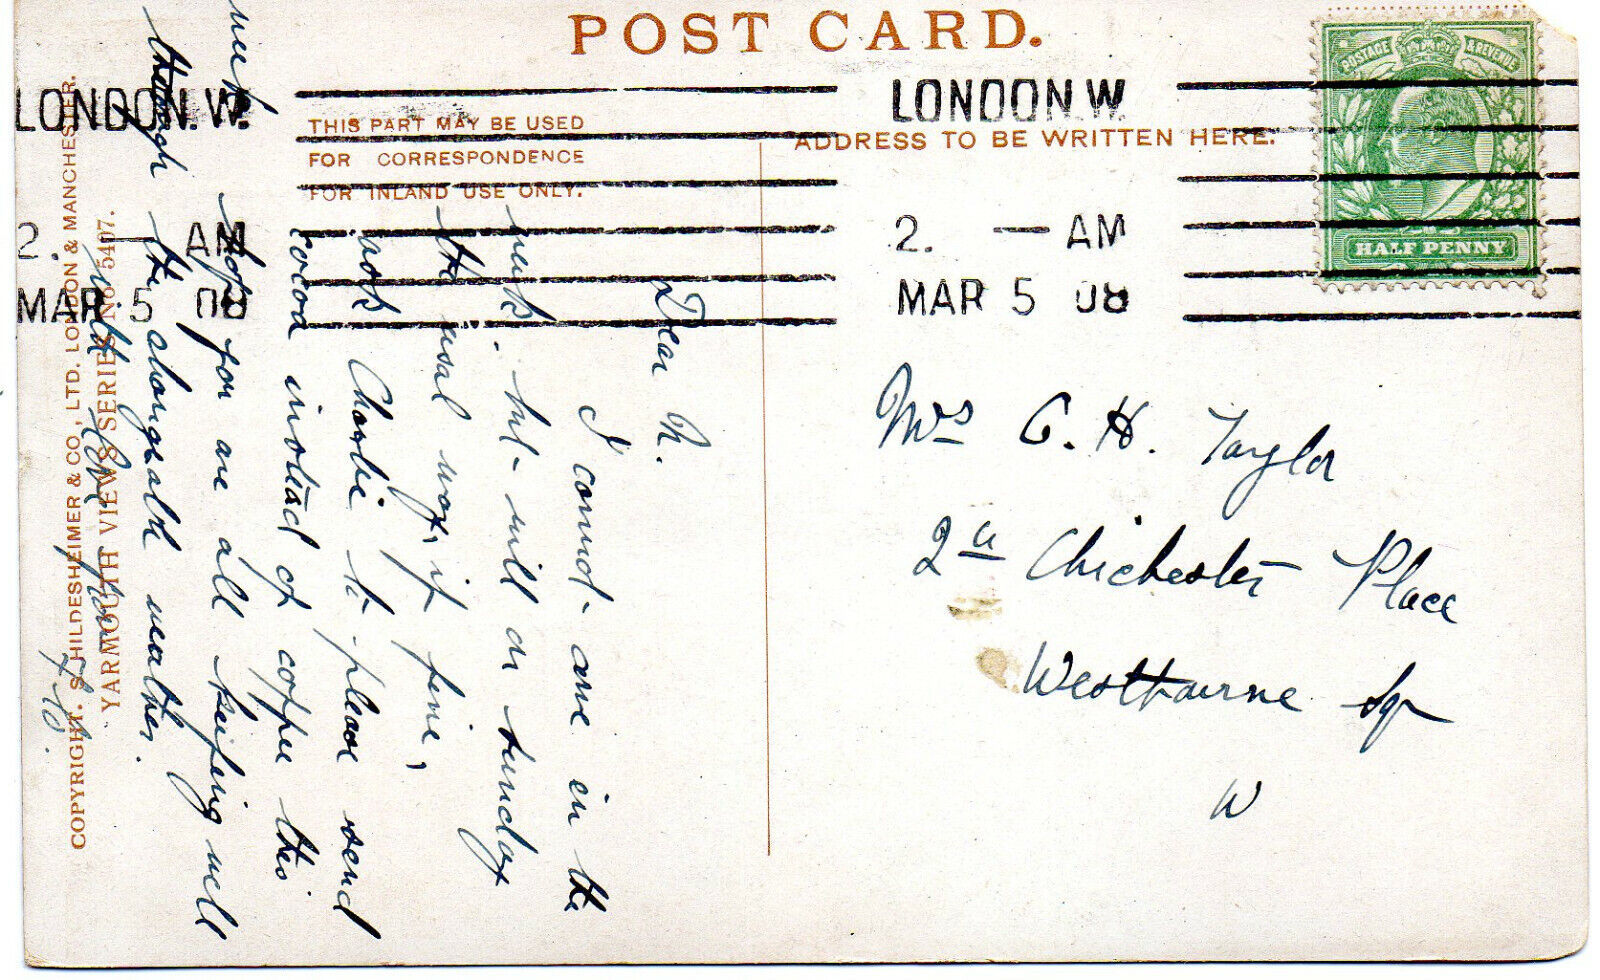 POST CARD.
LONDON.W.
2. — AM
MAR 5 08
THIS PART MAY BE USED
FOR CORRESPONDENCE
FOR INLAND USE ONLY.
LONDON.W
2. — AM
MAR 5 08
ADDRESS TO BE WRITTEN HERE.
POSTAGE & REVENUE
HALF PENNY
Mrs C. H. Taylor
2a Chichester Place
Westbourne Sqr
W
Dear N.
I cannot come in the
week, but will on Sunday
the usal way, if fine,
ask Charlie to please send
cocoa instead of coffee this
week.
Hope you are all keeping well
through the changeable weather.
with love from
COPYRIGHT. S. HILDESHEIMER & CO., LTD. LONDON & MANCHESTER.
YARMOUTH VIEWS SERIES NO 5407.